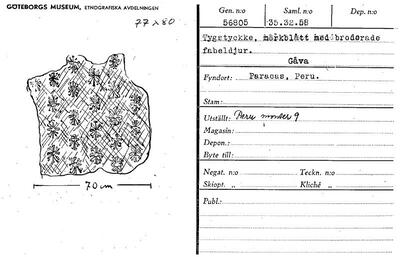 GÖTEBORGS MUSEUM, ETNOGRAFISKA AVDELNINGEN
77 x 80
70 cm
Gen. n:o Saml. n:o Depl. n:o
56805 35.32.58
Tygstycke, mörkblått med broderade
fabeldjur.
Gåva
Fyndort: Paracas, Peru.
Stam:
Utställt: Peru monter 9
Magasin:
Depon.:
Byte till:
Negat. n:o Teckn. n:o
Skiopt. „ Kliché „
Publ.: